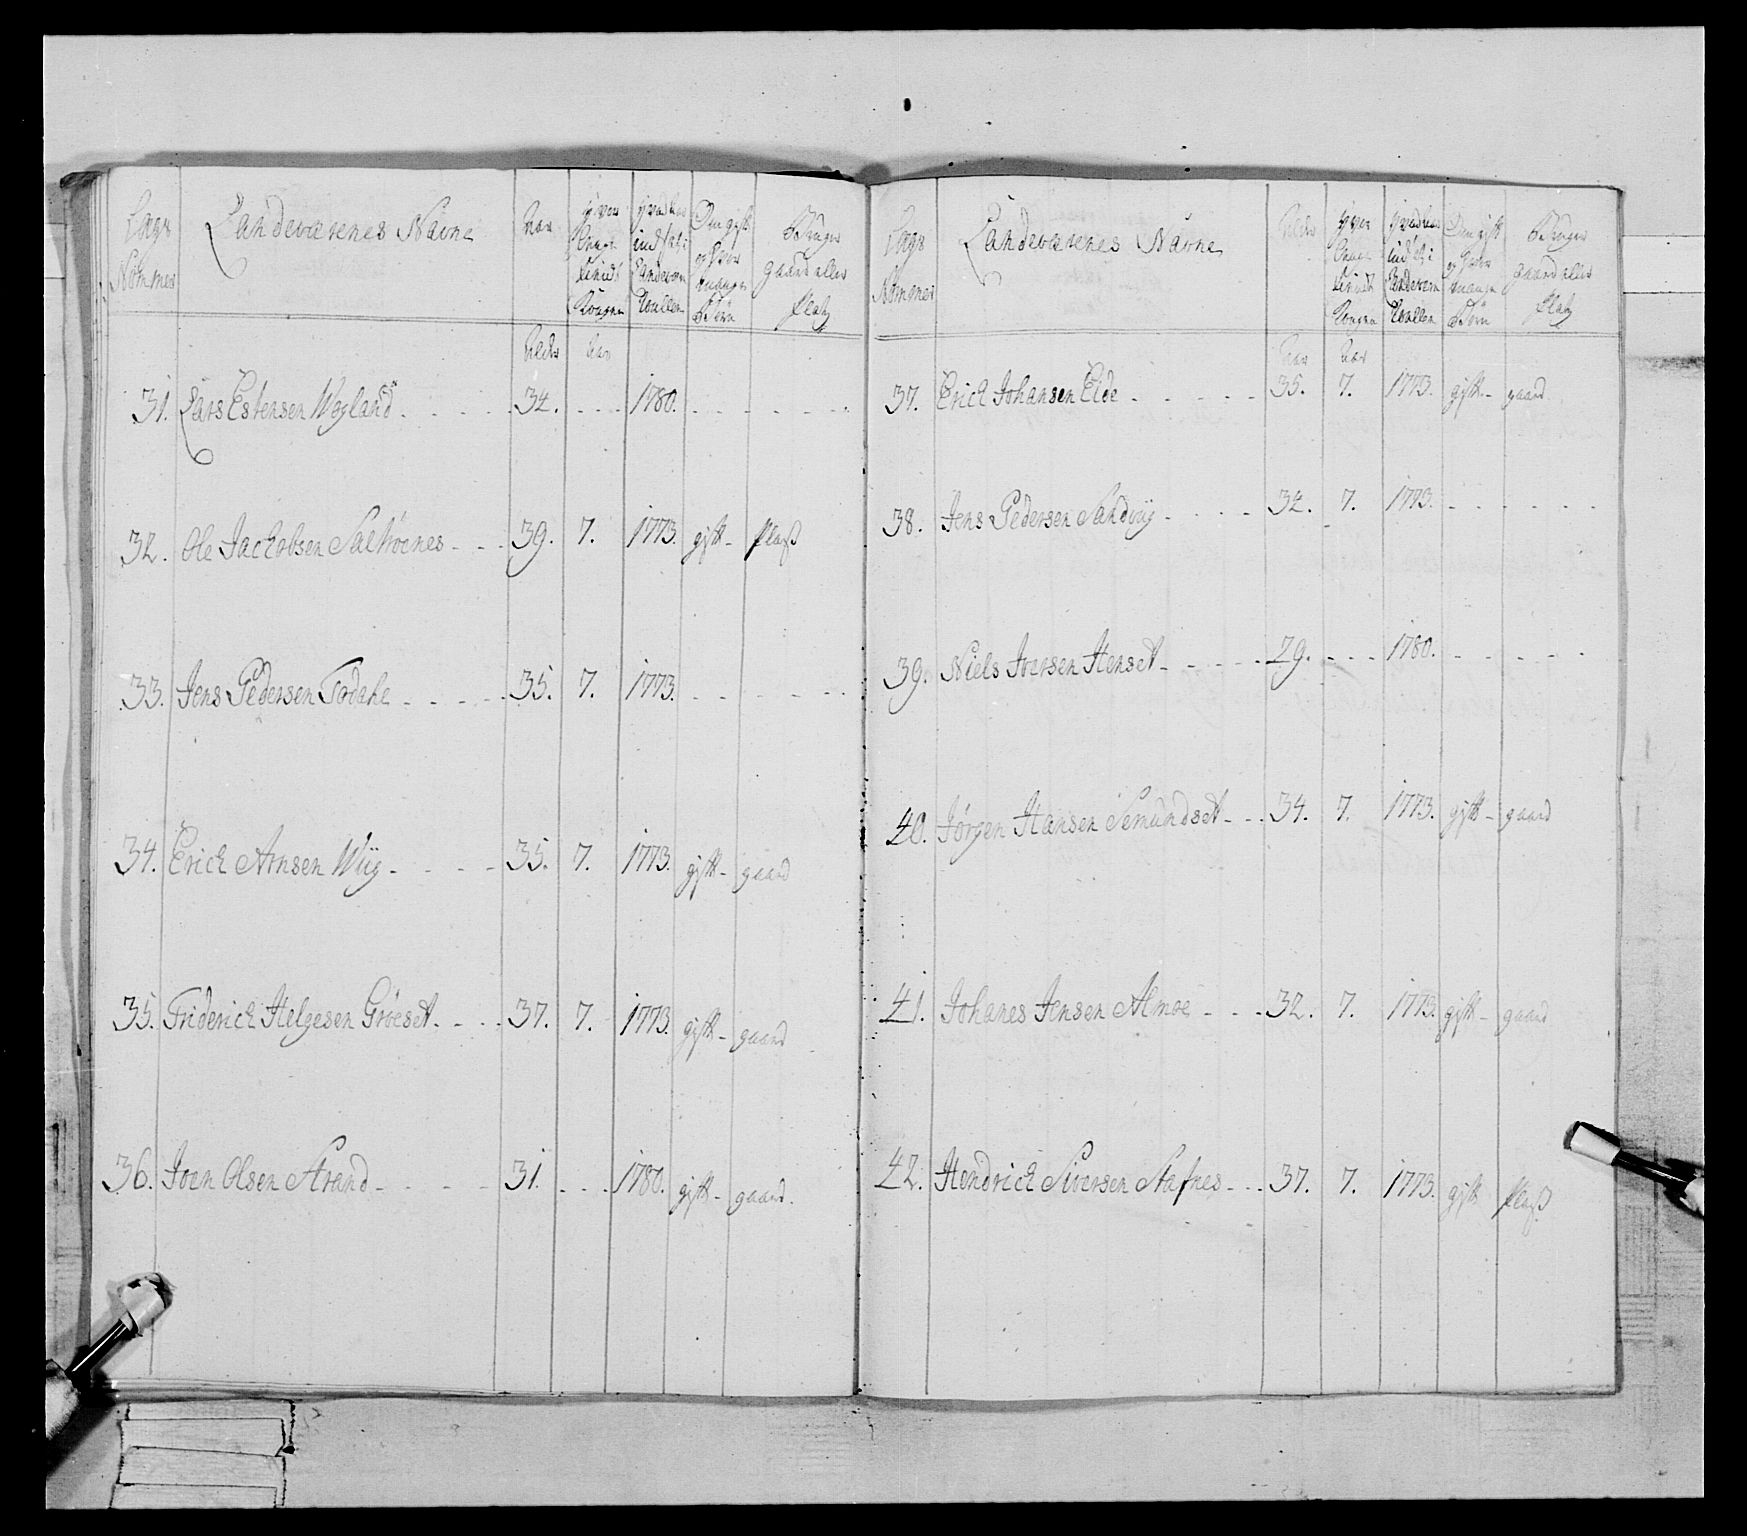 Lægs Nommer Landeværenes Navne Aar Hvor Længe tient Kongen Om gift og hvor mange Børn Bruger gaard eller Platz
Alder Aar
31. Lars Estensen Wogland 34. 1780.
32. Ole Jachobsen Saltrøenes 39. 7. 1773. gift Platz
33. Jens Pedersen Todahl 35. 7. 1773.
34. Erich Arnsen Wiig 35. 7. 1773. gift gaard
35. Friderich Helgesen Grøeset 37. 7. 1773. gift gaard
36. Joen Olsen Strand 31. 1780. gift gaard.
Lægs Nommer Landeværenes Navne Alder Hvor Længe tient Kongen Om gift og hvor mange Børn Bruger gaard eller Platz
Aar Aar
37. Erich Johansen Eide 35. 7. 1773. gift gaard
38. Jens Pedersen Sandviig 34. 7. 1773.
39. Niels Iversen Henset 29. 1780.
40. Jørgen Hansen Semundset 34. 7. 1773. gift gaard
41. Johanes Jensen Almoe 32. 7. 1773. gift gaard
42. Hendrich Siversen Stafnes 37. 7. 1773. gift Platz